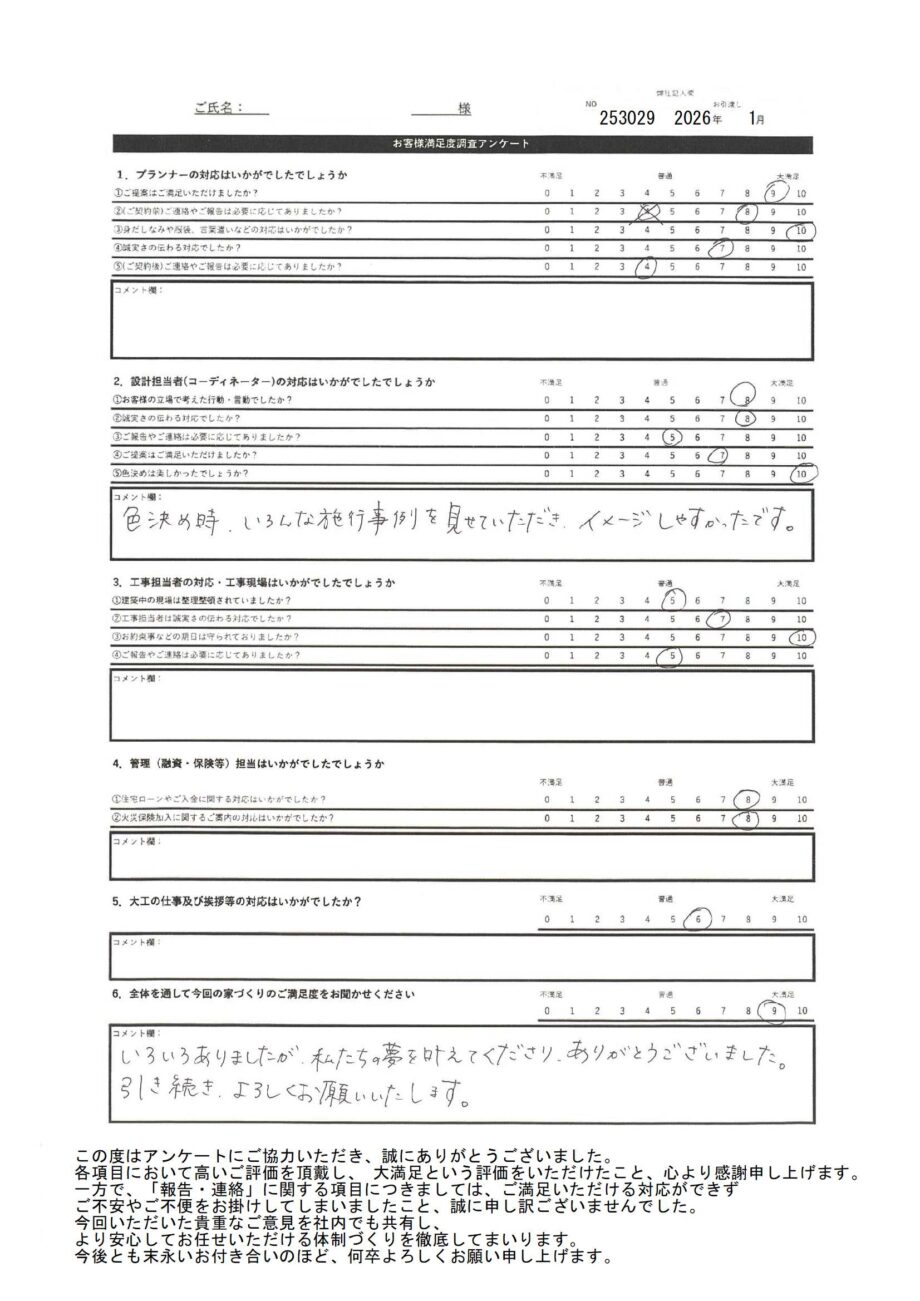 ご氏名： 様
弊社記入欄
NO 253029 お引渡し 2026年 1月
お客様満足度調査アンケート
1．プランナーの対応はいかがでしたでしょうか 不満足 普通 大満足
①ご提案はご満足いただけましたか？ 0 1 2 3 4 5 6 7 8 9 10
②(ご契約前)ご連絡やご報告は必要に応じてありましたか？ 0 1 2 3 4 5 6 7 8 9 10
③身だしなみや服装、言葉遣いなどの対応はいかがでしたか？ 0 1 2 3 4 5 6 7 8 9 10
④誠実さの伝わる対応でしたか？ 0 1 2 3 4 5 6 7 8 9 10
⑤(ご契約後)ご連絡やご報告は必要に応じてありましたか？ 0 1 2 3 4 5 6 7 8 9 10
コメント欄：
2．設計担当者(コーディネーター)の対応はいかがでしたでしょうか 不満足 普通 大満足
①お客様の立場で考えた行動・言動でしたか？ 0 1 2 3 4 5 6 7 8 9 10
②誠実さの伝わる対応でしたか？ 0 1 2 3 4 5 6 7 8 9 10
③ご報告やご連絡は必要に応じてありましたか？ 0 1 2 3 4 5 6 7 8 9 10
④ご提案はご満足いただけましたか？ 0 1 2 3 4 5 6 7 8 9 10
⑤色決めは楽しかったでしょうか？ 0 1 2 3 4 5 6 7 8 9 10
コメント欄：
色決め時、いろんな施行事例を見せていただき、イメージしやすかったです。
3．工事担当者の対応・工事現場はいかがでしたでしょうか 不満足 普通 大満足
①建築中の現場は整理整頓されていましたか？ 0 1 2 3 4 5 6 7 8 9 10
②工事担当者は誠実さの伝わる対応でしたか？ 0 1 2 3 4 5 6 7 8 9 10
③お約束事などの期日は守られておりましたか？ 0 1 2 3 4 5 6 7 8 9 10
④ご報告やご連絡は必要に応じてありましたか？ 0 1 2 3 4 5 6 7 8 9 10
コメント欄：
4．管理（融資・保険等）担当はいかがでしたでしょうか
不満足 普通 大満足
①住宅ローンやご入金に関する対応はいかがでしたか？ 0 1 2 3 4 5 6 7 8 9 10
②火災保険加入に関するご案内の対応はいかがでしたか？ 0 1 2 3 4 5 6 7 8 9 10
コメント欄：
5．大工の仕事及び挨拶等の対応はいかがでしたか？ 不満足 普通 大満足
0 1 2 3 4 5 6 7 8 9 10
コメント欄：
6．全体を通して今回の家づくりのご満足度をお聞かせください 不満足 普通 大満足
0 1 2 3 4 5 6 7 8 9 10
コメント欄：
いろいろありましたが、私たちの夢を叶えてくださり、ありがとうございました。
引き続き、よろしくお願いいたします。
この度はアンケートにご協力いただき、誠にありがとうございました。
各項目において高いご評価を頂戴し、 大満足という評価をいただけたこと、心より感謝申し上げます。
一方で、「報告・連絡」に関する項目につきましては、ご満足いただける対応ができず
ご不安やご不便をお掛けしてしまいましたこと、誠に申し訳ございませんでした。
今回いただいた貴重なご意見を社内でも共有し、
より安心してお任せいただける体制づくりを徹底してまいります。
今後とも末永いお付き合いのほど、何卒よろしくお願い申し上げます。